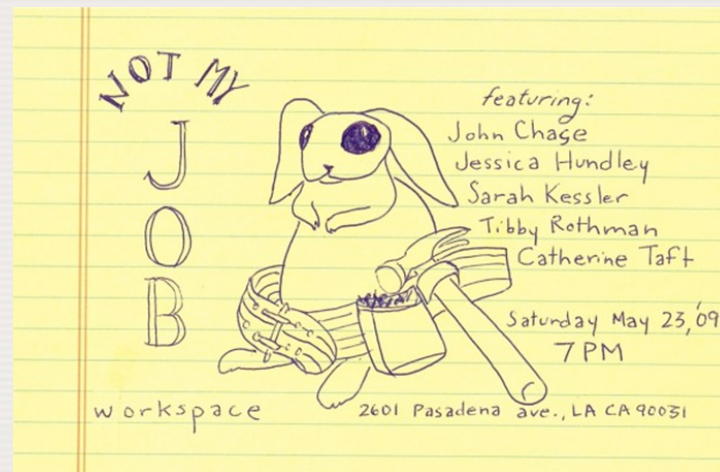 NOT MY
JOB
featuring:
John Chase
Jessica Hundley
Sarah Kessler
Tibby Rothman
Catherine Taft
Saturday May 23, '09
7 PM
workspace
2601 Pasadena ave., LA CA 90031